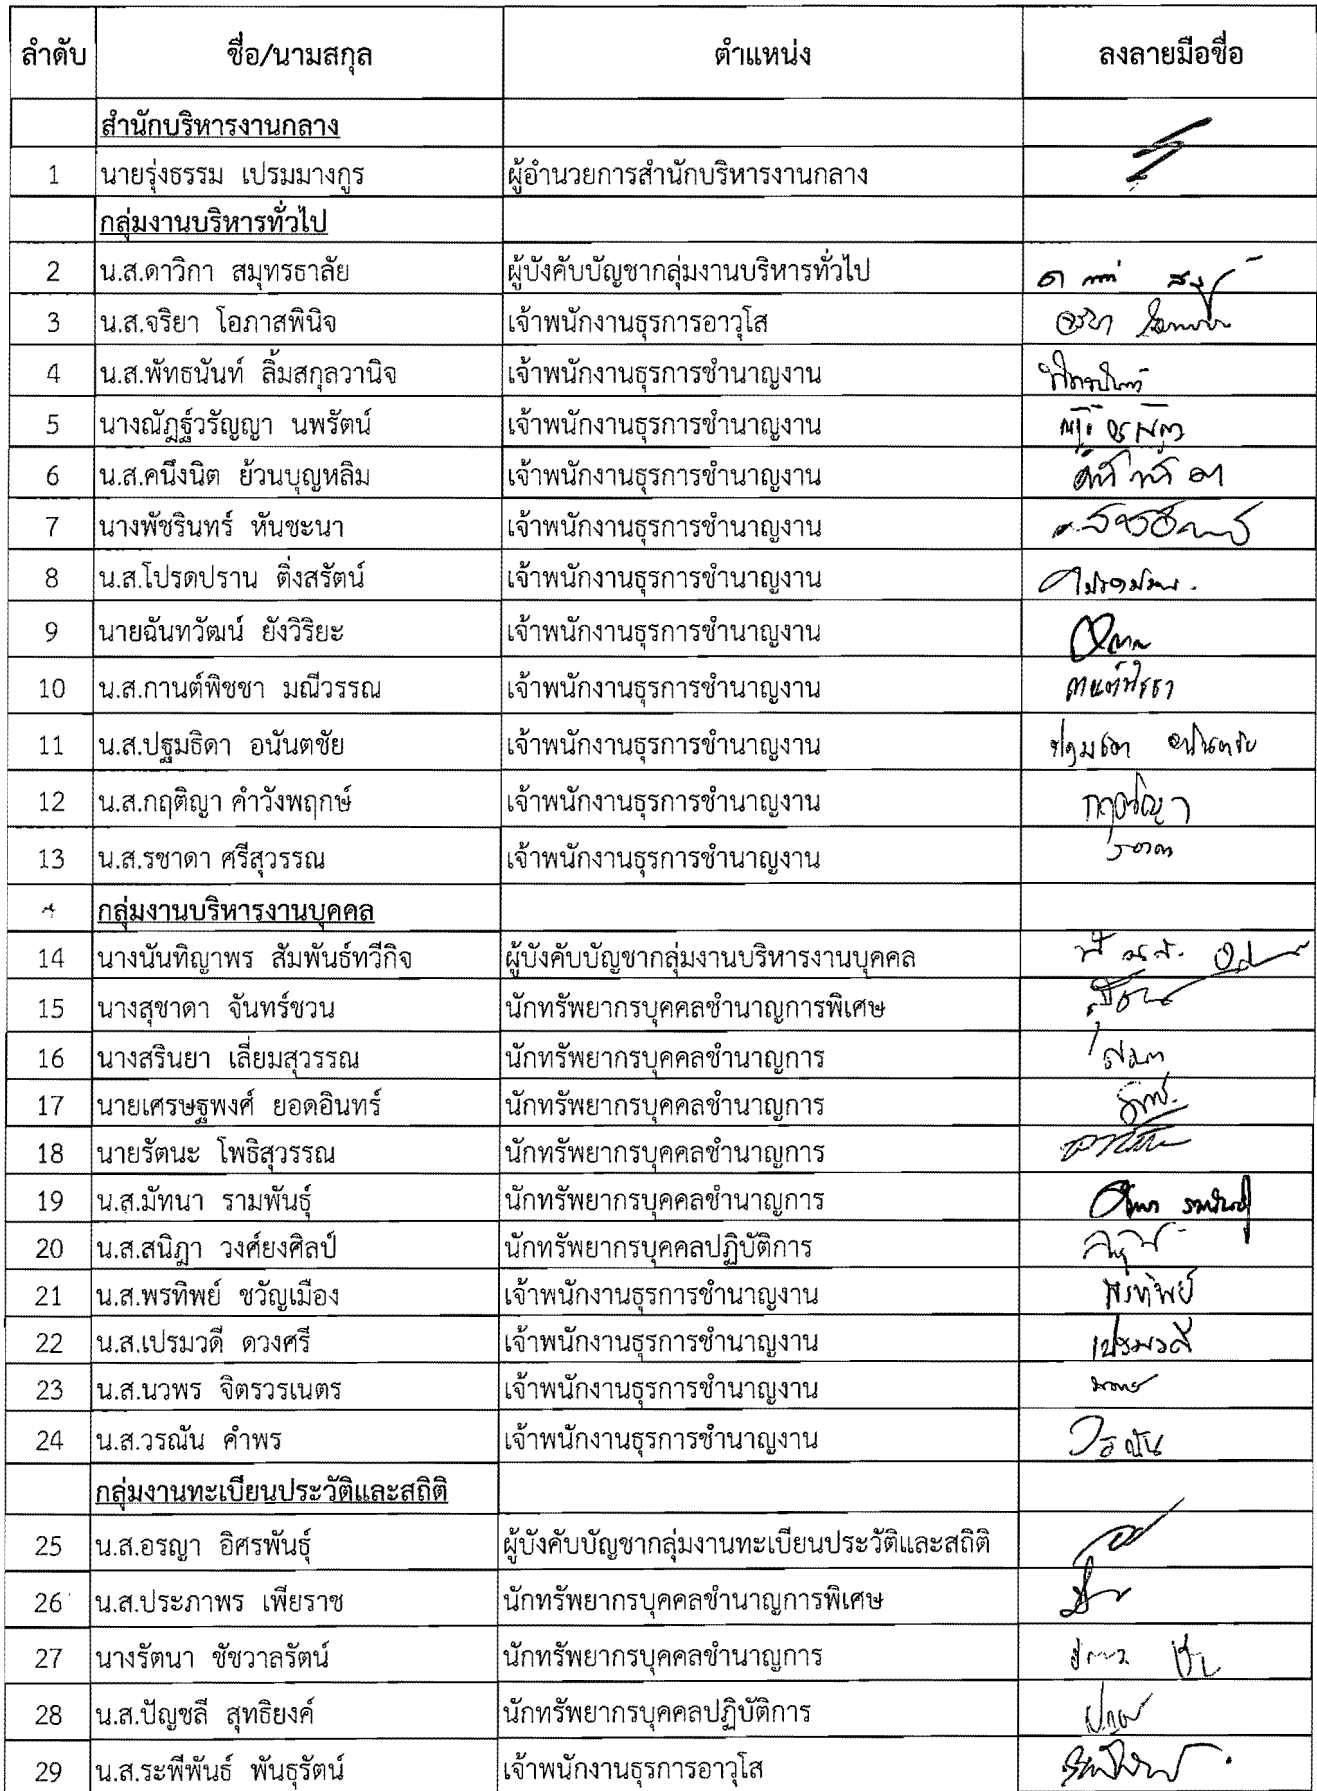 ลำดับ ชื่อ/นามสกุล ตำแหน่ง ลงลายมือชื่อ
สำนักบริหารงานกลาง
1 นายรุ่งธรรม เปรมมางกูร ผู้อำนวยการสำนักบริหารงานกลาง
กลุ่มงานบริหารทั่วไป
2 น.ส.ดาวิกา สมุทรธาลัย ผู้บังคับบัญชากลุ่มงานบริหารทั่วไป
3 น.ส.จริยา โอภาสพินิจ เจ้าพนักงานธุรการอาวุโส จริยา
4 น.ส.พัทธนันท์ ลิ้มสกุลวานิจ เจ้าพนักงานธุรการชำนาญงาน
5 นางณัฎฐ์วรัญญา นพรัตน์ เจ้าพนักงานธุรการชำนาญงาน
6 น.ส.คนึงนิต ย้วนบุญหลิม เจ้าพนักงานธุรการชำนาญงาน
7 นางพัชรินทร์ หันชะนา เจ้าพนักงานธุรการชำนาญงาน
8 น.ส.โปรดปราน ติ่งสรัตน์ เจ้าพนักงานธุรการชำนาญงาน
9 นายฉันทวัฒน์ ยังวิริยะ เจ้าพนักงานธุรการชำนาญงาน
10 น.ส.กานต์พิชชา มณีวรรณ เจ้าพนักงานธุรการชำนาญงาน กานต์พิชชา
11 น.ส.ปฐมธิดา อนันตชัย เจ้าพนักงานธุรการชำนาญงาน ปฐมธิดา อนันตชัย
12 น.ส.กฤติญา คำวังพฤกษ์ เจ้าพนักงานธุรการชำนาญงาน กฤติญา
13 น.ส.รชาดา ศรีสุวรรณ เจ้าพนักงานธุรการชำนาญงาน รชาดา
กลุ่มงานบริหารงานบุคคล
14 นางนันทิญาพร สัมพันธ์ทวีกิจ ผู้บังคับบัญชากลุ่มงานบริหารงานบุคคล
15 นางสุชาดา จันทร์ชวน นักทรัพยากรบุคคลชำนาญการพิเศษ
16 นางสรินยา เลี่ยมสุวรรณ นักทรัพยากรบุคคลชำนาญการ
17 นายเศรษฐพงศ์ ยอดอินทร์ นักทรัพยากรบุคคลชำนาญการ
18 นายรัตนะ โพธิสุวรรณ นักทรัพยากรบุคคลชำนาญการ
19 น.ส.มัทนา รามพันธุ์ นักทรัพยากรบุคคลชำนาญการ มัทนา รามพันธุ์
20 น.ส.สนิฎา วงศ์ยงศิลป์ นักทรัพยากรบุคคลปฏิบัติการ
21 น.ส.พรทิพย์ ชวัญเมือง เจ้าพนักงานธุรการชำนาญงาน พรทิพย์
22 น.ส.เปรมวดี ดวงศรี เจ้าพนักงานธุรการชำนาญงาน เปรมวดี
23 น.ส.นวพร จิตรวรเนตร เจ้าพนักงานธุรการชำนาญงาน นวพร
24 น.ส.วรณัน คำพร เจ้าพนักงานธุรการชำนาญงาน วรณัน
กลุ่มงานทะเบียนประวัติและสถิติ
25 น.ส.อรญา อิศรพันธุ์ ผู้บังคับบัญชากลุ่มงานทะเบียนประวัติและสถิติ
26 น.ส.ประภาพร เพียราช นักทรัพยากรบุคคลชำนาญการพิเศษ
27 นางรัตนา ชัชวาลรัตน์ นักทรัพยากรบุคคลชำนาญการ
28 น.ส.ปัญชลี สุทธิยงค์ นักทรัพยากรบุคคลปฏิบัติการ
29 น.ส.ระพีพันธ์ พันธุรัตน์ เจ้าพนักงานธุรการอาวุโส